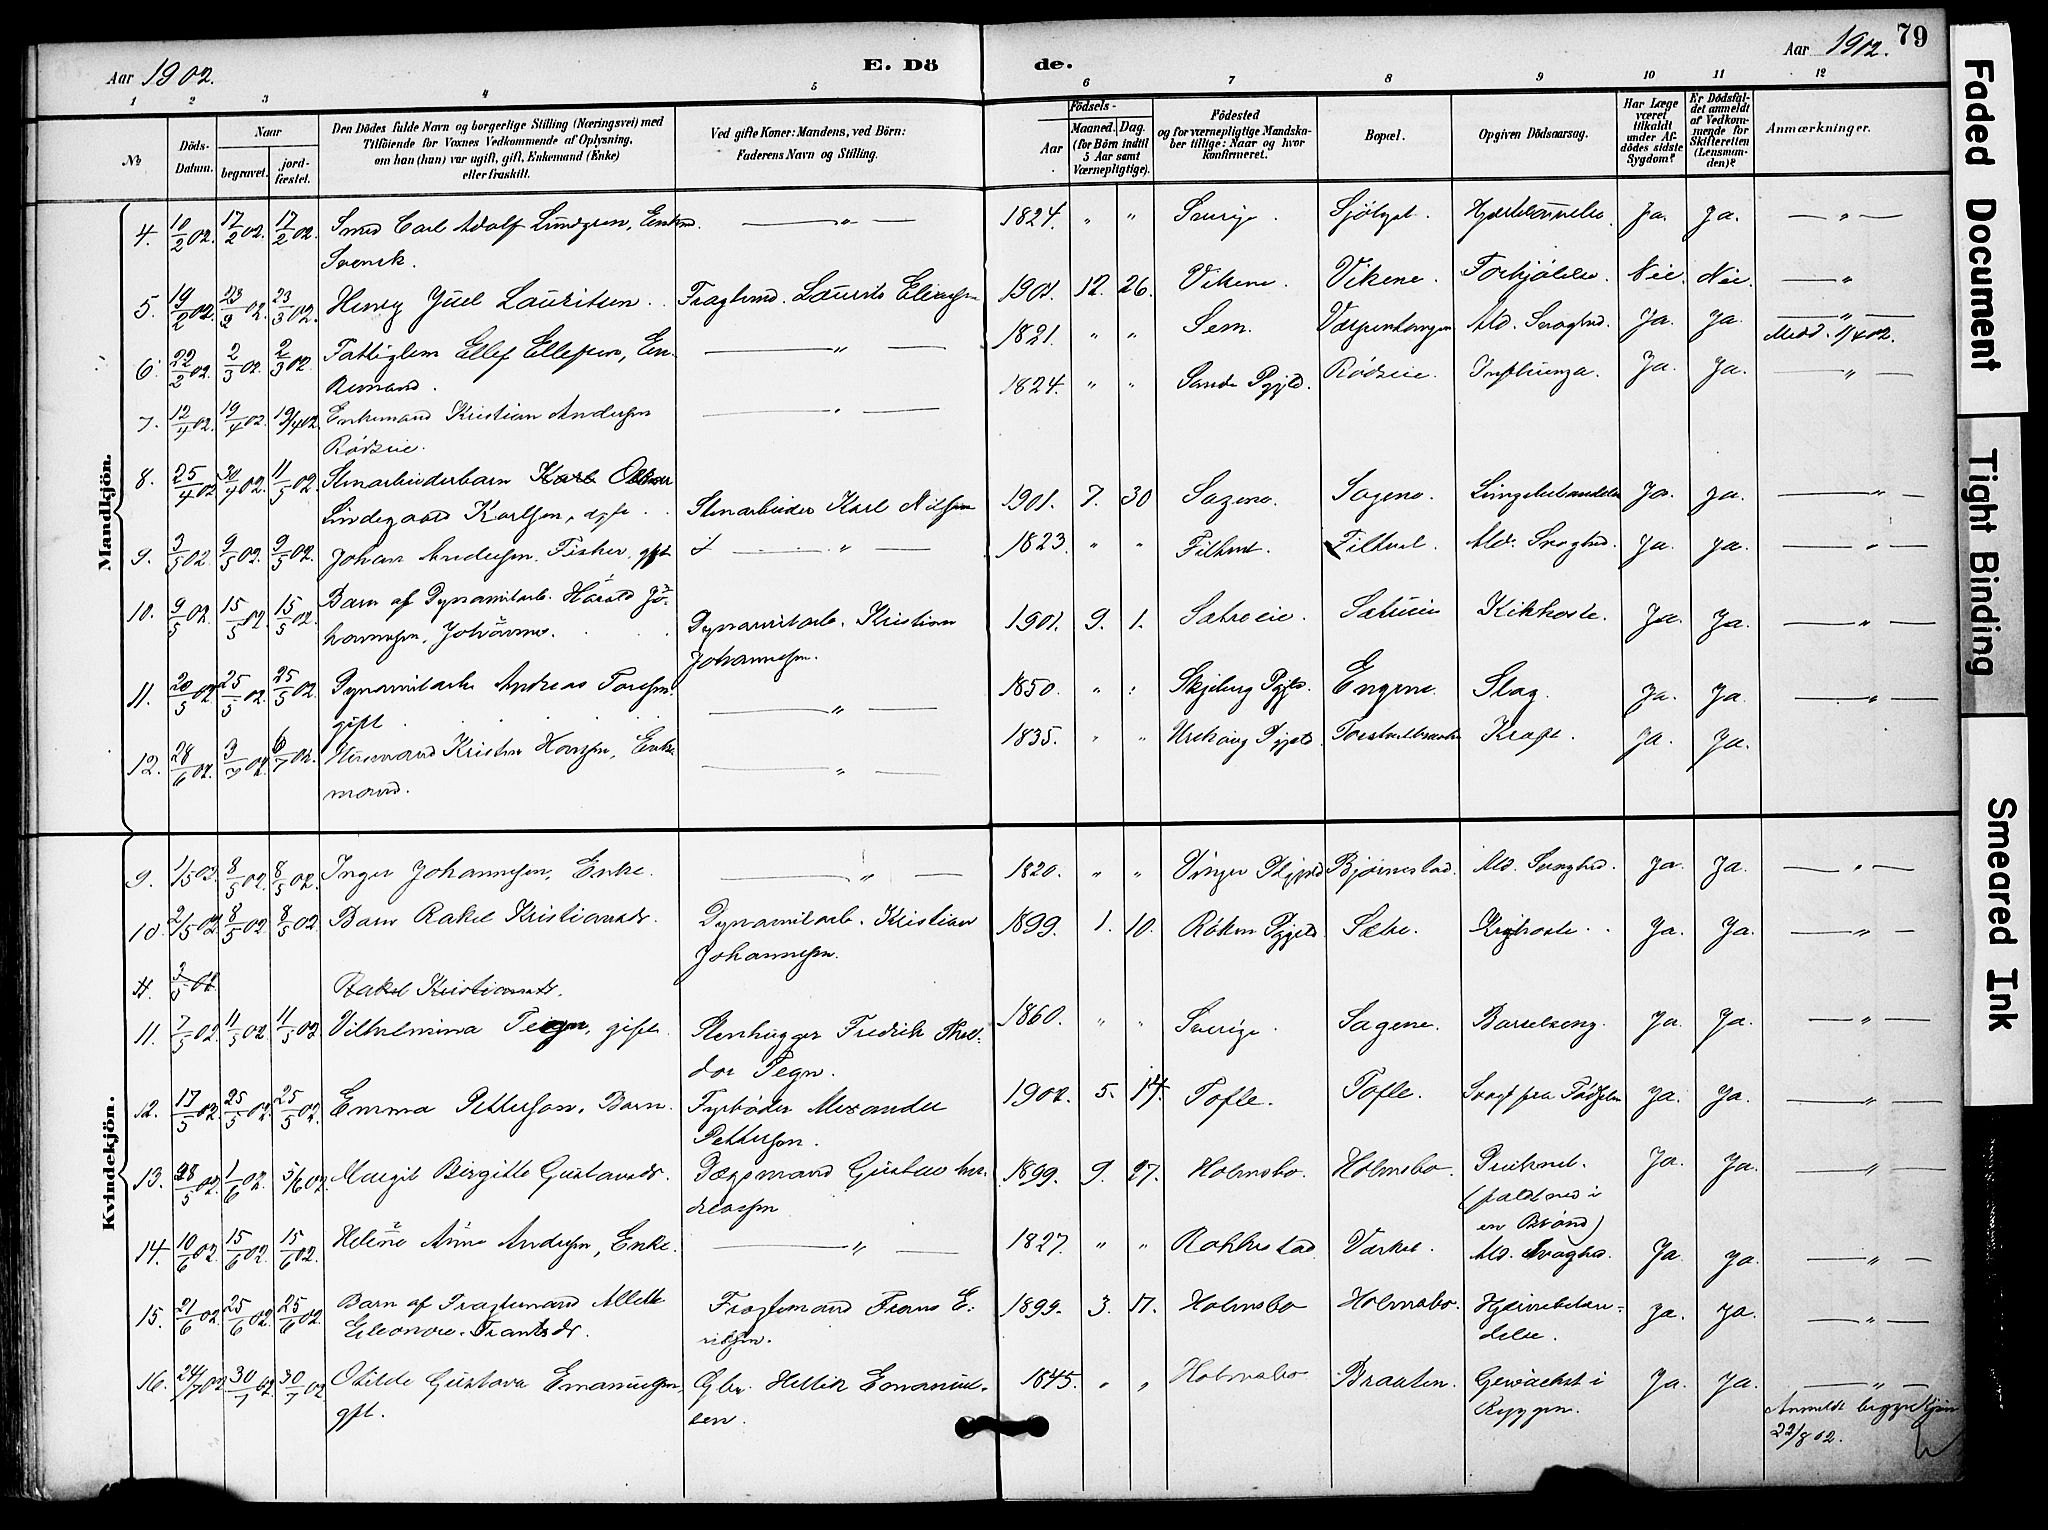 79
Aar 1902.
E. Dö
de.
Aar 1902.
1 2 3 4 5 6 7 8 9 10 11 12
No
Döds-Datum.
Naar
begravet.
jord-fæstet.
Den Dödes fulde Navn og borgerlige Stilling (Næringsvei) med
Tilföiende for Voxnes Vedkommende af Oplysning,
om han (hun) var ugift, gift, Enkemand (Enke)
eller fraskilt.
Ved gifte Koner: Mandens, ved Börn:
Faderens Navn og Stilling.
Födsels-
Aar
Maaned. Dag.
(for Börn indtil
5 Aar samt
Værnepligtige).
Födested
og for værnepligtige Mandska-
ber tillige: Naar og hvor
konfirmeret.
Bopæl.
Opgiven Dödsaarsag.
Har Læge
været
tilkaldt
under Af-
dödes sidste
Sygdom?
Er Dödsfal-
det anmeldt
af Vedkom-
mende for
Skifteretten
(Lensman-
den)?
Anmærkninger.
Mandkjön.
4. 10/2 02. 17/2 02. 17/2 02. Smed Carl Adolf Lundgren, Enkm. — " — 1824. " " Sverige. Ja. Ja. — " —
Svensk.
5. 19/2 02. 23/02. 23/3 02. Henry Juel Lauritsen. Fragtmd. Laurits 1901. 12. 26. Vikene. Vikene. Nei. Nei. — "
6. 22/2 02. 2/3 02. 2/3 02. Fattiglem Ellef Ellefsen, En- — " — 1821. " " Sem. Ald. Svaghed. Ja. Ja. — " —
kemand. Medd. 1/4 02.
7. 12/4 02. 19/4 02. 19/4 02. Enkemand Kristian Andersen — " — 1824. " " Sande Pgjld. Rödseie. Influenza. Ja. Ja. — " —
Rödseie.
8. 25/4 02. 30/4 02. 11/5 02. Stenarbeiderbarn Karl
Lindegaard Karlsen, ægte. Stenarbeider Karl Nilsen 1901. 7. 30 Sagene. Sagene. Ja. Ja. — " —
9. 3/5 02. 9/5 02. 9/5 02. Johan Andersen Fisker, gift — " — 1823. " " Filtvet. Filtvet. Ald. Svaghed. Ja. Ja. — " —
10. 9/5 02. 15/5 02. 15/5 02. Barn af Dynamitarb. Harald Jo-
hannesen, Johannes. Dynamitarb. Kristian 1901. 9. 1. Sætreeie. Sætreeie Kikhoste. Ja. Ja. — " —
Johannesen.
11. 20/5 02. 25/5 02. 25/5 02. Dynamitarb. Andreas — " — 1850. " " Skjeberg Pgjld. Engene. Slag. Ja. Ja. — " —
gift.
12. 28/6 02. 3/7 02. 6/7 02. Huusmand Kristen Hansen, Enke- — " — 1835. " " Urskoug Pgjld. Kræft. Ja. Ja.
mand.
Kvindekjön.
9. 1/5 02. 8/5 02. 8/5 02. Inger Johannesen, Enke. — " — 1820. " " Vinger Pgjeld Björnestad. Ald. Svaghed. Ja. Ja. — " —
10. 2/5 02. 8/5 02. 8/5 02. Barn Rakel Kristiansdr. Dynamitarb. Kristian 1899. 1. 10. Röken Pgjeld. Sætre. Kighoste. Ja. Ja. — " —
Johannesen.
11. 3/5 02 Rakel Kristiansdr.
11. 7/5 02. 11/5 02. 11/5 02. Vilhelmina Tegn, gift. Stenhugger Fredrik Theo- 1860. " " Sverige. Sagene. Barselseng. Ja. Ja. — " —
dor Tegn.
12. 17/5 02. 25/5 02. 25/5 02. Emma Petterson, Barn. Fyrböder Alexander 1902. 5. 14. Tofte. Tofte. Svagt fra Födselen Ja. Ja. — " —
Petterson.
13. 28/5 02. 1/6 02. 5/6 02. Margit Birgitte Gustavsdr. Dægsmand Gustav An- 1899. 9. 27. Holmsbo. Holmsbo. Druknet. Ja. Ja. — " —
dreasen (faldt ned i
en Brönd)
14. 10/6 02. 15/6 02. 15/6 02. Helene Anne Andersen, Enke. — " — 1827. " " Rakkestad Ald. Svaghed. Ja. Ja. — " —
15. 21/6 02. 25/6 02. 25/6 02. Barn af Fragtemand Alette Fragtemand Frans E- 1899. 3. 17. Holmsbo Holmsbo. Hjernebetæn- Ja. Ja. — " —
Eleonore Frantsdr. riksen. delse.
16. 24/7 02 30/7 02 30/7 02 Otilde Gustava Emanuelsen, Gbr. Hellik Emanuel- 1845. " " Holmsbo Braaten. Gewächst i Ja. Ja. — " —
gft. sen. Ryggen.
Anmeldt begge Kjön
22/8 02.
Faded Document
Tight Binding
Smeared Ink